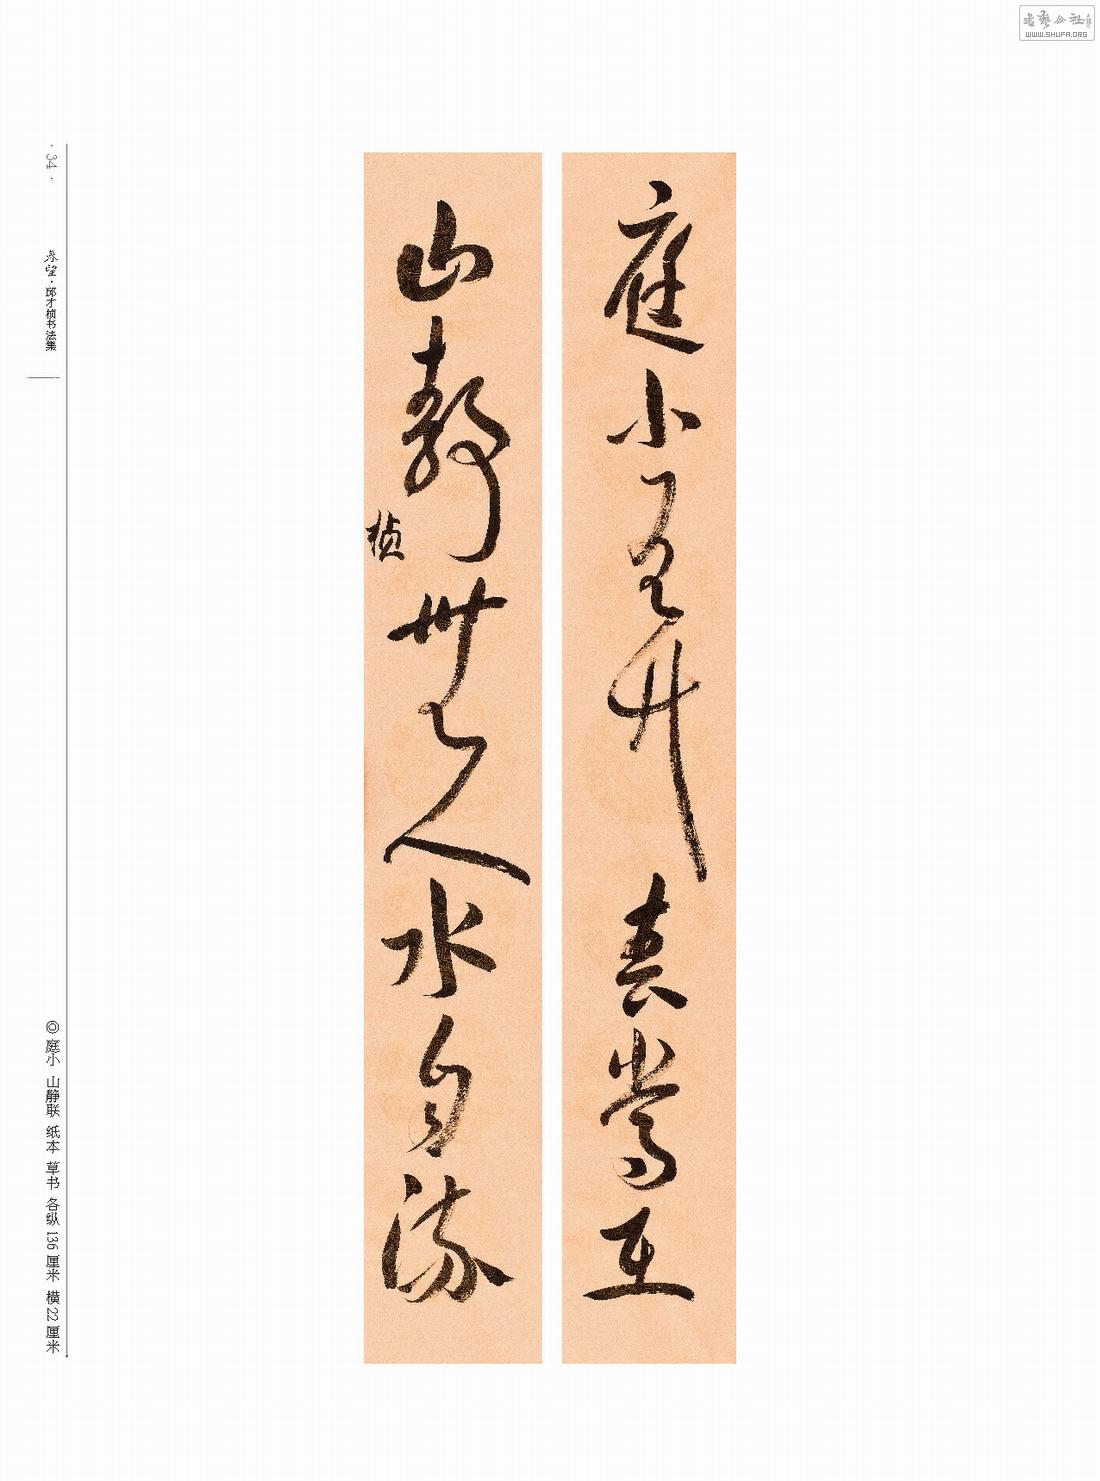 庭小有竹春常在
山静无人水自流
桢
· 34 ·
春望·邱才桢书法集
◎ 庭小 山静联 纸本 草书 各纵136厘米 横22厘米
书艺公社
WWW.SHUFA.ORG